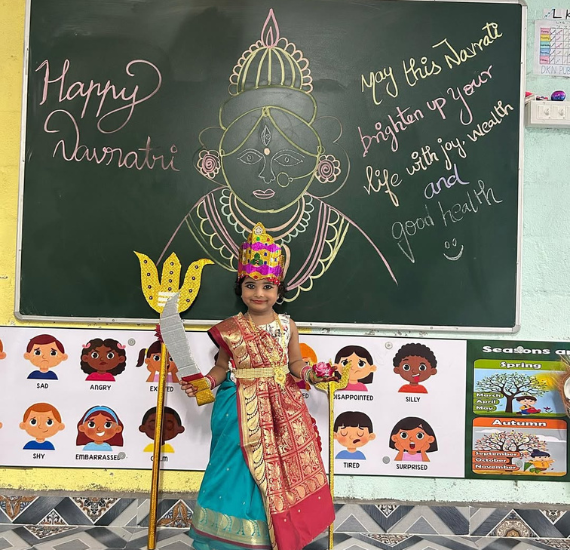 Happy
Navratri
May this Navrati
brighten up your
life with joy. wealth
and
good health
SAD
ANGRY
DISAPPOINTED
SILLY
SHY
EMBARRASSED
TIRED
SURPRISED
Seasons
Spring
March
April
May
Autumn
September
October
November